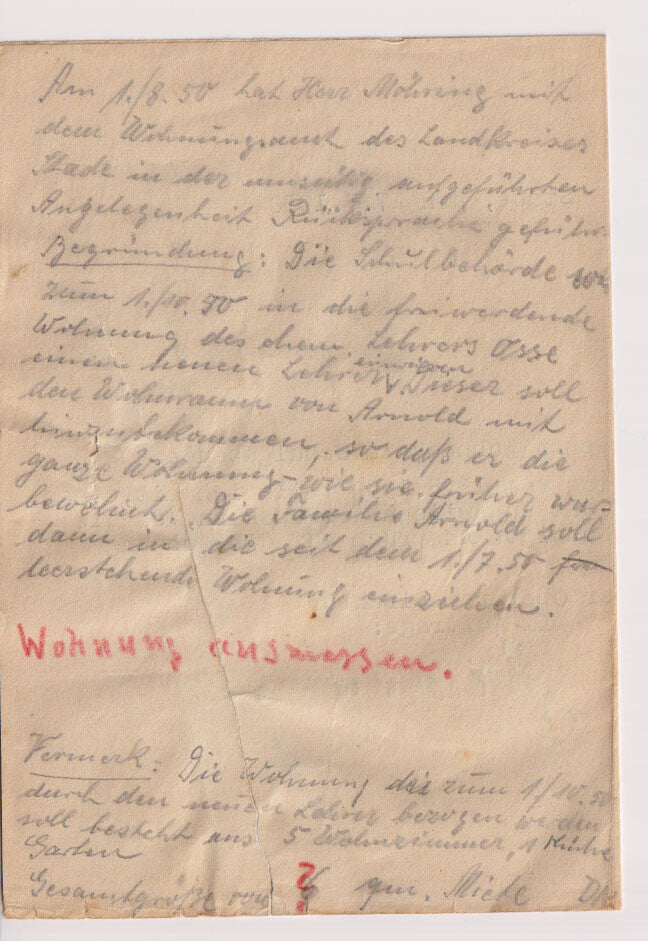 Am 1./8.50 hat Herr Möhring mit
dem Wohnungsamt des Landkreises
Stade in der umseitig aufgeführten
Angelegenheit Rücksprache geführt.
Begründung: Die Schulbehörde
zum 1./10.50 in die freiwerdende
Wohnung des ehem. Lehrers Osse
einen neuen Lehrer einweisen. Dieser soll
den Wohnraum von Arnold mit
hinzubekommen, so daß er die
ganze Wohnung - wie sie früher war -
bewohnt. Die Familie Arnold soll
dann in die seit dem 1./7.50
leerstehende Wohnung einziehen.
Wohnung ausmessen.
Vermerk: Die Wohnung die zum 1/10.50
durch den neuen Lehrer bezogen werden
soll besteht aus 5 Wohnzimmer, 1 Küche
Garten
Gesamtgröße von ? qm. Miete